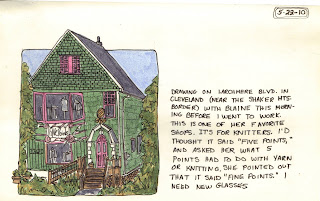 5-22-10
DRAWING ON LARCHMERE BLVD. IN
CLEVELAND (NEAR THE SHAKER HTS.
BORDER) WITH BLAINE THIS MORN-
ING BEFORE I WENT TO WORK.
THIS IS ONE OF HER FAVORITE
SHOPS. IT'S FOR KNITTERS. I'D
THOUGHT IT SAID "FIVE POINTS,"
AND ASKED HER WHAT 5
POINTS HAD TO DO WITH YARN
OR KNITTING. SHE POINTED OUT
THAT IT SAID "FINE POINTS." I
NEED NEW GLASSES